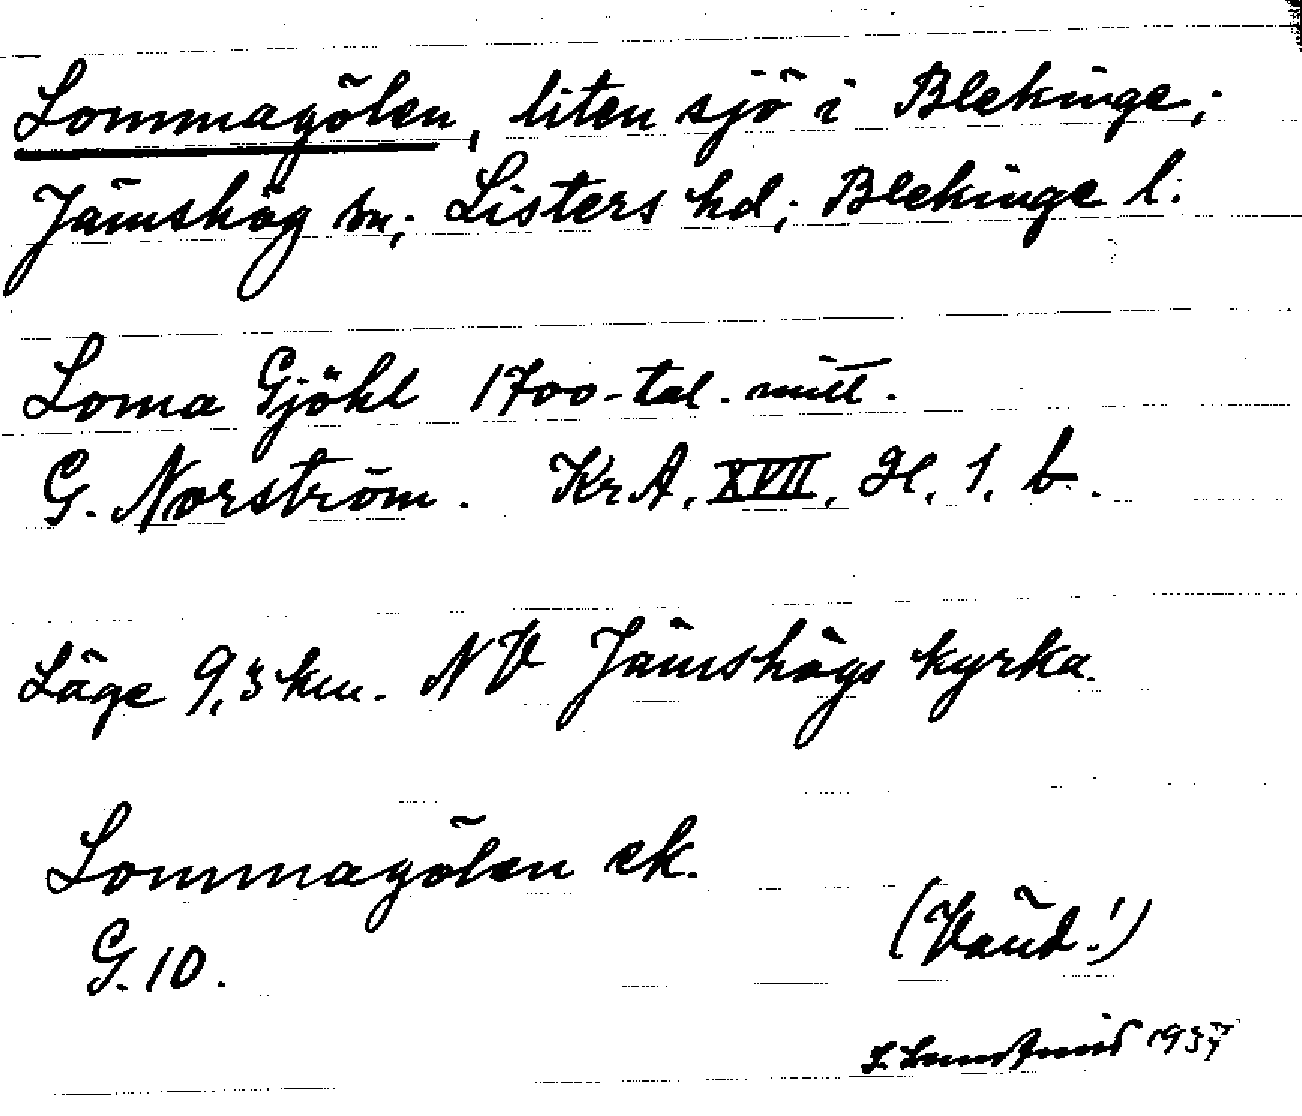 Lommagölen, liten sjö i Blekinge;
Jämshög sn; Listers hd; Blekinge l.
Loma Gjöhl 1700-tal. mitt.
G. Norström. KrA. XVII, H. 1. b.
Läge 9,3 km. NV Jämshögs kyrka.
Lommagölen ek.
G. 10.
(Vänd!)
1937